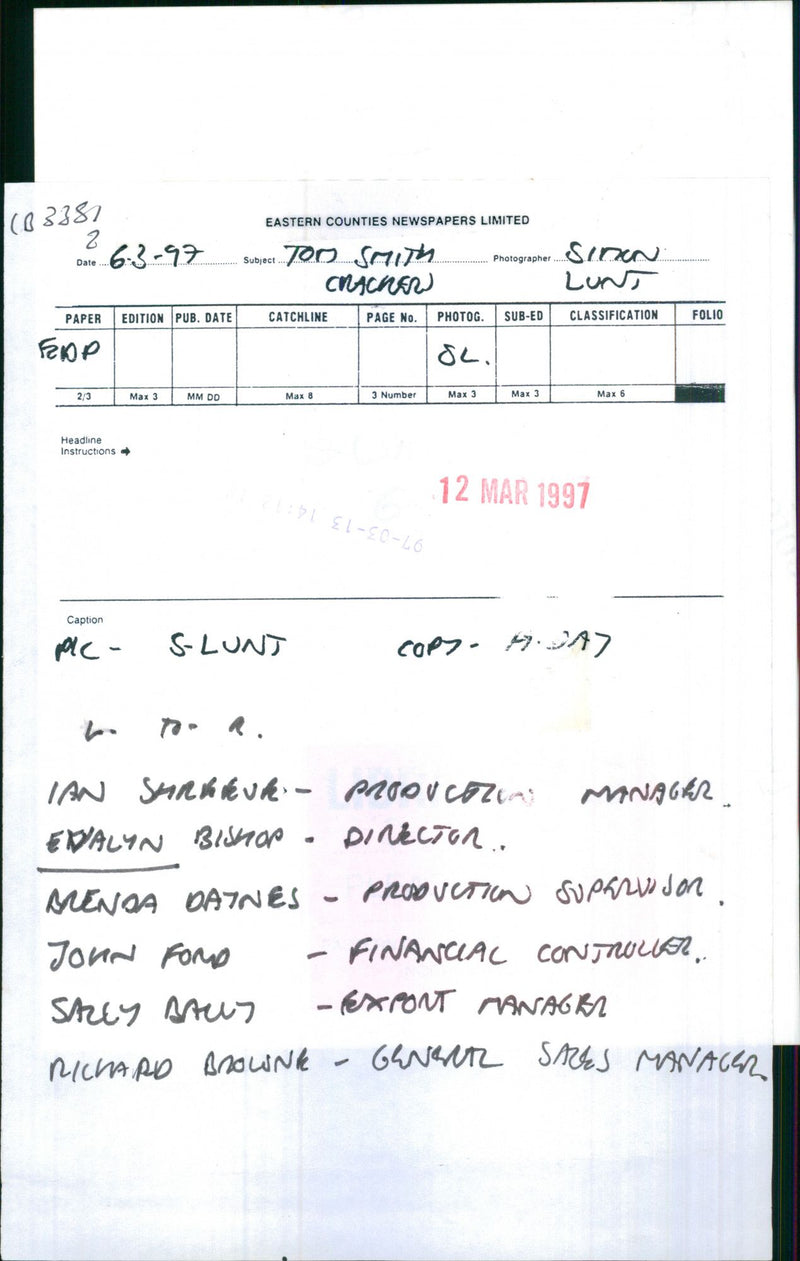 CB 3381
2
EASTERN COUNTIES NEWSPAPERS LIMITED
Date 6-3-97 Subject TOM SMITH Photographer SIMON
CRACKERS LUNT
PAPER EDITION PUB. DATE CATCHLINE PAGE No. PHOTOG. SUB-ED CLASSIFICATION FOLIO
EDP SL.
2/3 Max 3 MM DD Max 8 3 Number Max 3 Max 3 Max 6
Headline
Instructions
12 MAR 1997
97-03-13 14:12
Caption
PIC - S-LUNT COPY - DAY
L- TO- R.
IAN - PRODUCTION MANAGER.
EVALYN BISHOP - DIRECTOR.
BRENDA DAYNES - PRODUCTION SUPERVISOR.
JOHN FORD - FINANCIAL CONTROLLER.
SALLY BALLY - EXPORT MANAGER
RICHARD BROWNE - GENERAL SALES MANAGER.